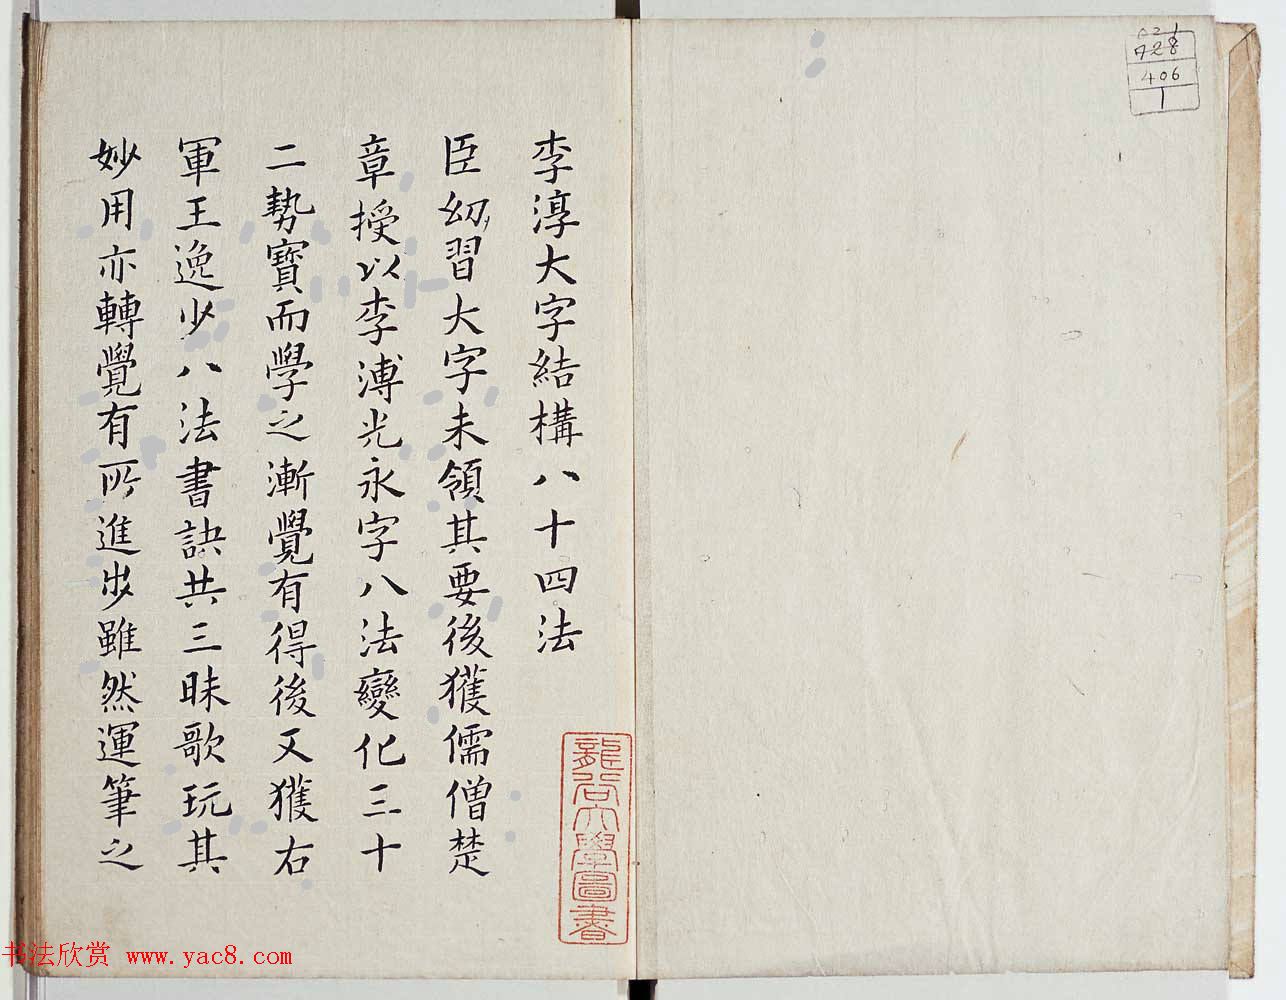 李淳大字結構八十四法
臣幼習大字未領其要後獲儒僧楚
章授以李溥光永字八法變化三十
二勢寶而學之漸覺有得後又獲右
軍王逸少八法書訣共三昧歌玩其
妙用亦轉覺有所進步雖然運筆之
龍谷大學圖書
021
428
406
1
书法欣赏 www.yac8.com